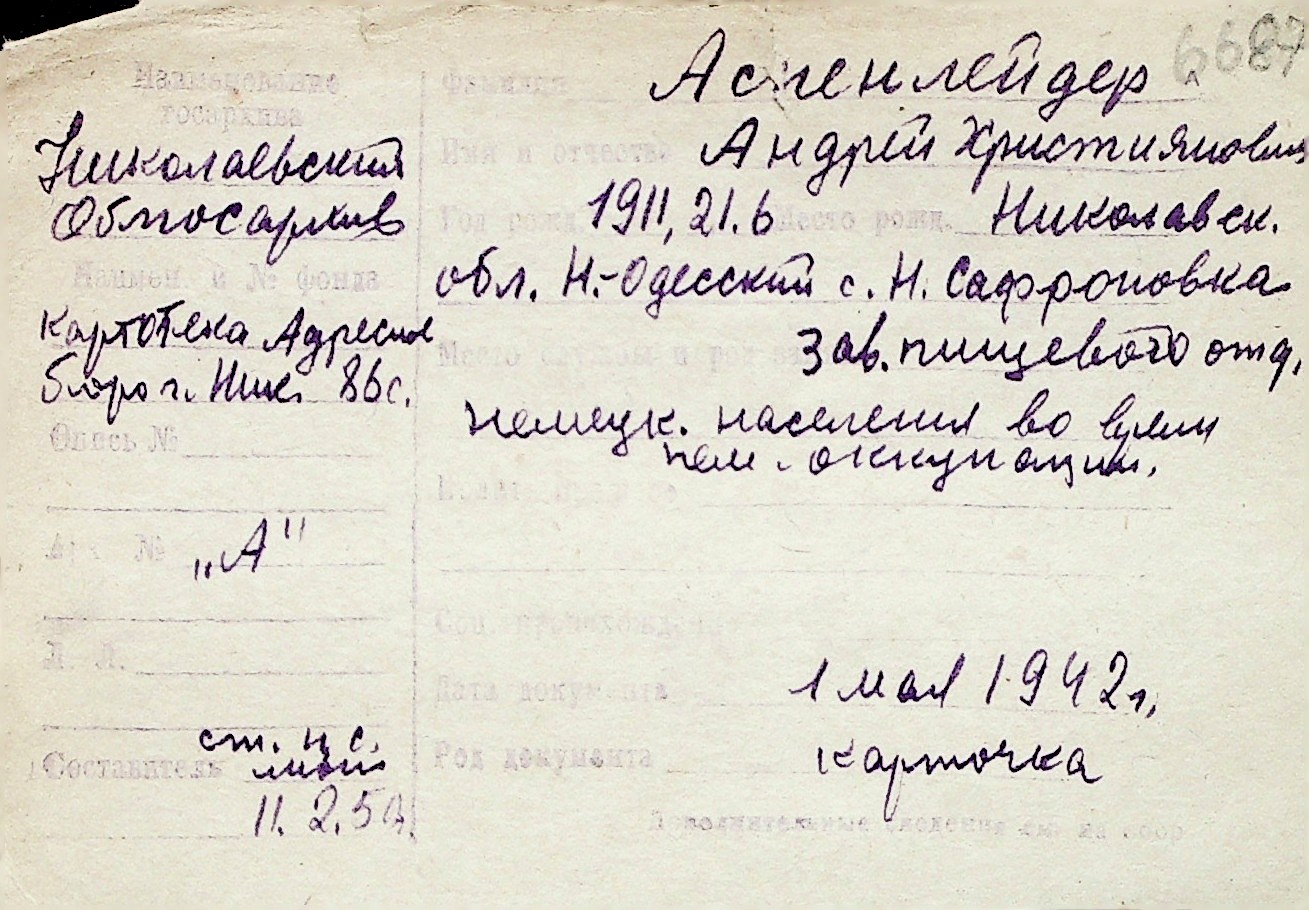 6687
Наименование
госархива
Николаевский
Облгосархив
Наимен. и № фонда
Картотека Адресное
бюро г. Ник. 86 с.
Опись №
Арх. №
„А"
Л. Л.
Составитель ст. н. с.
11. 2. 50.
Фамилия
Имя и отчество Андрей Християнович
Год рожд. 1911, 21.6 Место рожд. Николаевск.
обл. Н.-Одесский с. Н. Сафроновка
Место службы и род Зав. пищевого отд.
немецк. населения во время
нем. оккупации.
Соц. происхождение
Дата документа 1 мая 1942 г.
Род документа карточка
Дополнительные сведения см. на обор